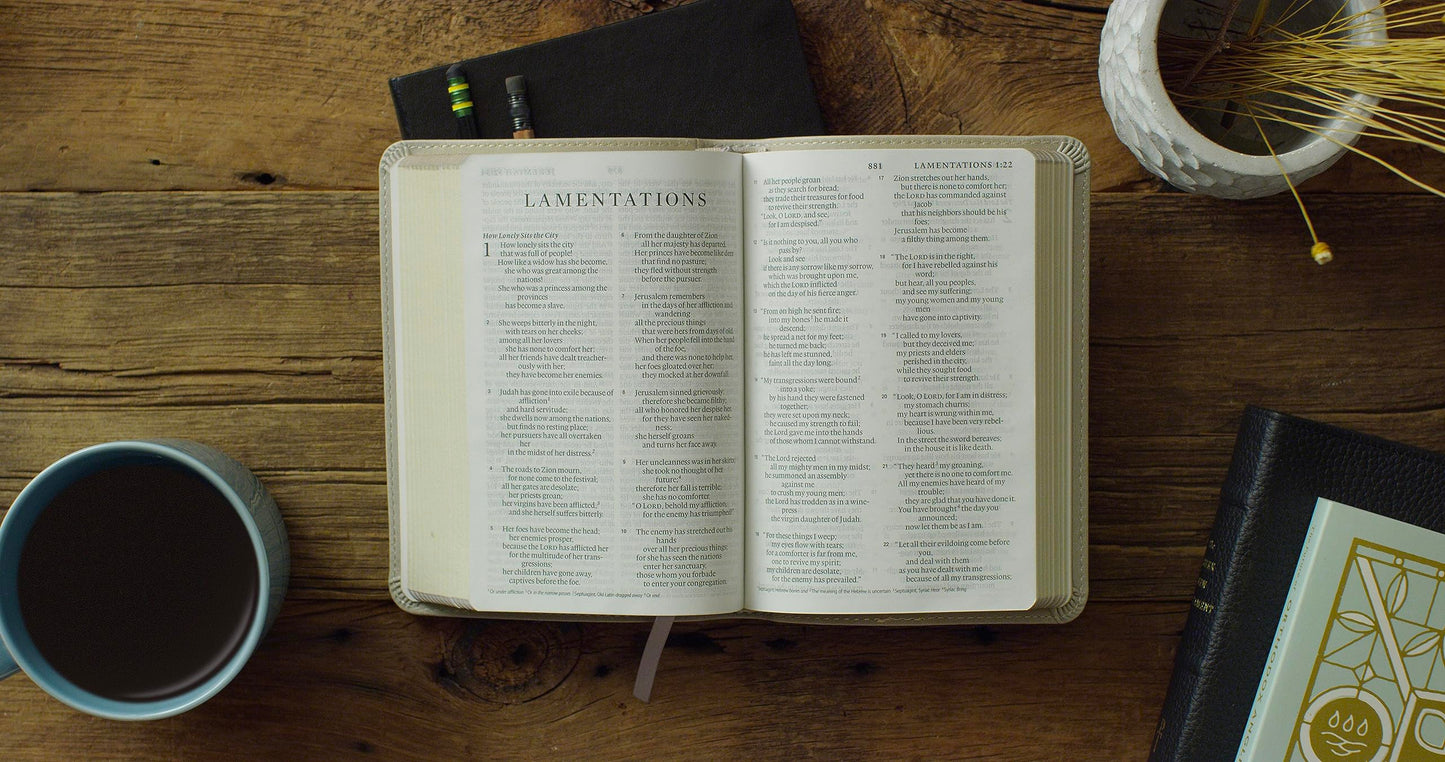 LAMENTATIONS
How Lonely Sits the City
1 How lonely sits the city
that was full of people!
How like a widow has she become,
she who was great among the
nations!
She who was a princess among the
provinces
has become a slave.
2 She weeps bitterly in the night,
with tears on her cheeks;
among all her lovers
she has none to comfort her;
all her friends have dealt treacher-
ously with her;
they have become her enemies.
3 Judah has gone into exile because of
affliction¹
and hard servitude;
she dwells now among the nations,
but finds no resting place;
her pursuers have all overtaken
her
in the midst of her distress.²
4 The roads to Zion mourn,
for none come to the festival;
all her gates are desolate;
her priests groan;
her virgins have been afflicted,³
and she herself suffers bitterly.
5 Her foes have become the head;
her enemies prosper,
because the LORD has afflicted her
for the multitude of her trans-
gressions;
her children have gone away,
captives before the foe.
6 From the daughter of Zion
all her majesty has departed.
Her princes have become like deer
that find no pasture;
they fled without strength
before the pursuer.
7 Jerusalem remembers
in the days of her affliction and
wandering
all the precious things
that were hers from days of old.
When her people fell into the hand
of the foe,
and there was none to help her,
her foes gloated over her;
they mocked at her downfall.
8 Jerusalem sinned grievously;
therefore she became filthy;
all who honored her despise her,
for they have seen her naked-
ness;
she herself groans
and turns her face away.
9 Her uncleanness was in her skirts;
she took no thought of her
future;⁴
therefore her fall is terrible;
she has no comforter.
“O LORD, behold my affliction,
for the enemy has triumphed!”
10 The enemy has stretched out his
hands
over all her precious things;
for she has seen the nations
enter her sanctuary,
those whom you forbade
to enter your congregation.
¹ Or under affliction ² Or in the narrow passes ³ Septuagint, Old Latin dragged away ⁴ Or end
881 LAMENTATIONS 1:22
11 All her people groan
as they search for bread;
they trade their treasures for food
to revive their strength.
“Look, O LORD, and see,
for I am despised.”
12 “Is it nothing to you, all you who
pass by?
Look and see
if there is any sorrow like my sorrow,
which was brought upon me,
which the LORD inflicted
on the day of his fierce anger.
13 “From on high he sent fire;
into my bones¹ he made it
descend;
he spread a net for my feet;
he turned me back;
he has left me stunned,
faint all the day long.
14 “My transgressions were bound²
into a yoke;
by his hand they were fastened
together;
they were set upon my neck;
he caused my strength to fail;
the Lord gave me into the hands
of those whom I cannot withstand.
15 “The Lord rejected
all my mighty men in my midst;
he summoned an assembly
against me
to crush my young men;
the Lord has trodden as in a wine-
press
the virgin daughter of Judah.
16 “For these things I weep;
my eyes flow with tears;
for a comforter is far from me,
one to revive my spirit;
my children are desolate,
for the enemy has prevailed.”
17 Zion stretches out her hands,
but there is none to comfort her;
the LORD has commanded against
Jacob
that his neighbors should be his
foes;
Jerusalem has become
a filthy thing among them.
18 “The LORD is in the right,
for I have rebelled against his
word;
but hear, all you peoples,
and see my suffering;
my young women and my young
men
have gone into captivity.
19 “I called to my lovers,
but they deceived me;
my priests and elders
perished in the city,
while they sought food
to revive their strength.
20 “Look, O LORD, for I am in distress;
my stomach churns;
my heart is wrung within me,
because I have been very rebel-
lious.
In the street the sword bereaves;
in the house it is like death.
21 “They heard³ my groaning,
yet there is no one to comfort me.
All my enemies have heard of my
trouble;
they are glad that you have done it.
You have brought⁴ the day you
announced;
now let them be as I am.
22 “Let all their evildoing come before
you,
and deal with them
as you have dealt with me
because of all my transgressions;
¹ Septuagint; Hebrew bones and ² The meaning of the Hebrew is uncertain ³ Septuagint, Syriac Hear ⁴ Syriac Bring